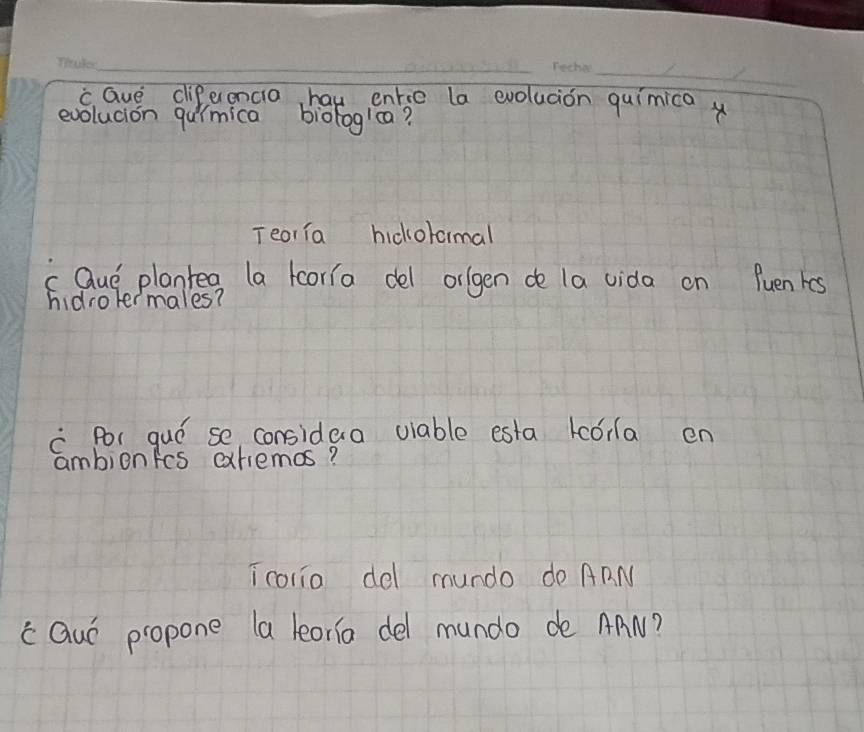 Título: Fecha:
¿Qué diferencia hay entre la evolución química y
evolución química biologica?
Teoría hidrotermal
¿Qué plantea la teoría del origen de la vida en fuentes
hidrotermales?
¿Por qué se considera viable esta teoría en
ambientes extremos?
Teoría del mundo de ARN
¿Qué propone la teoría del mundo de ARN?